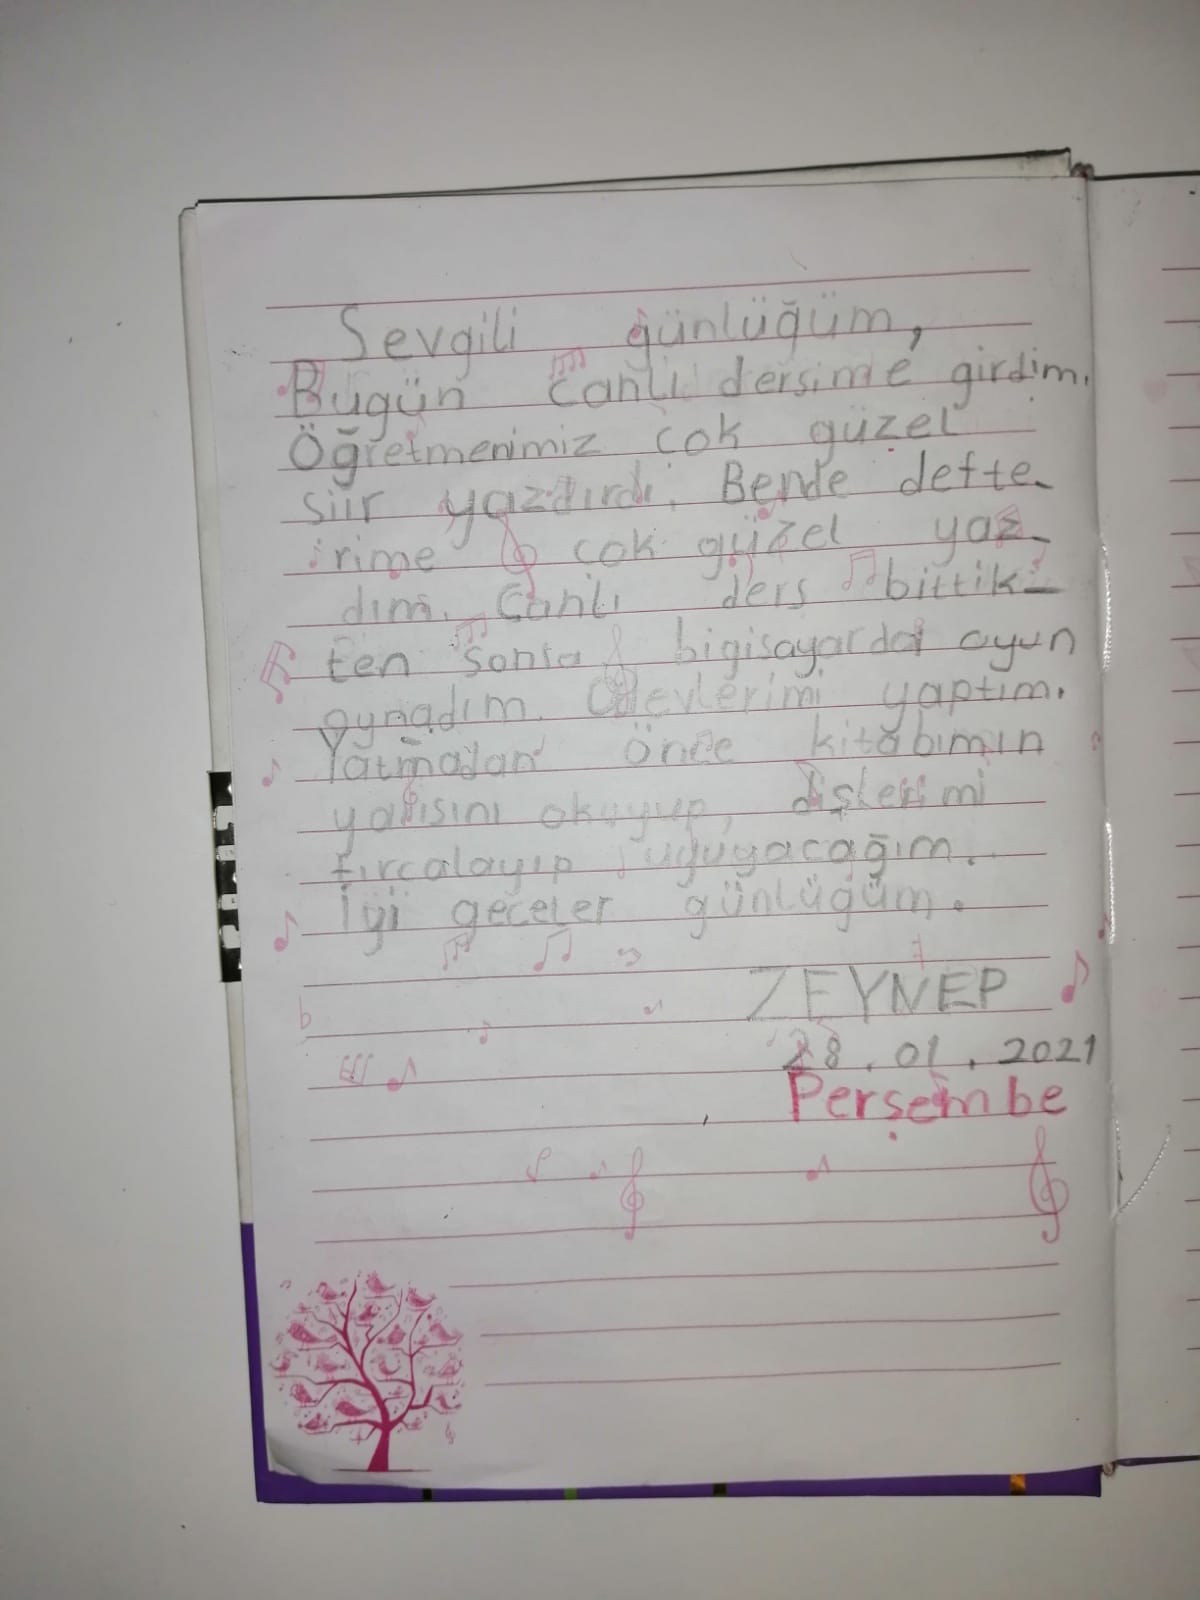 Sevgili günlüğüm,
Bugün canlı dersime girdim.
Öğretmenimiz çok güzel
siir yazdırdı. Bende defte-
rime çok güzel yaz-
dım. Canlı ders bittik-
ten sonra bigisayarda oyun
oynadım. Ödevlerimi yaptım.
Yatmadan önce kitabımın
yarısını okuyup, dişlerimi
fırçalayıp uyuyacağım.
İyi geceler günlüğüm.
ZEYNEP
28.01.2021
Perşembe